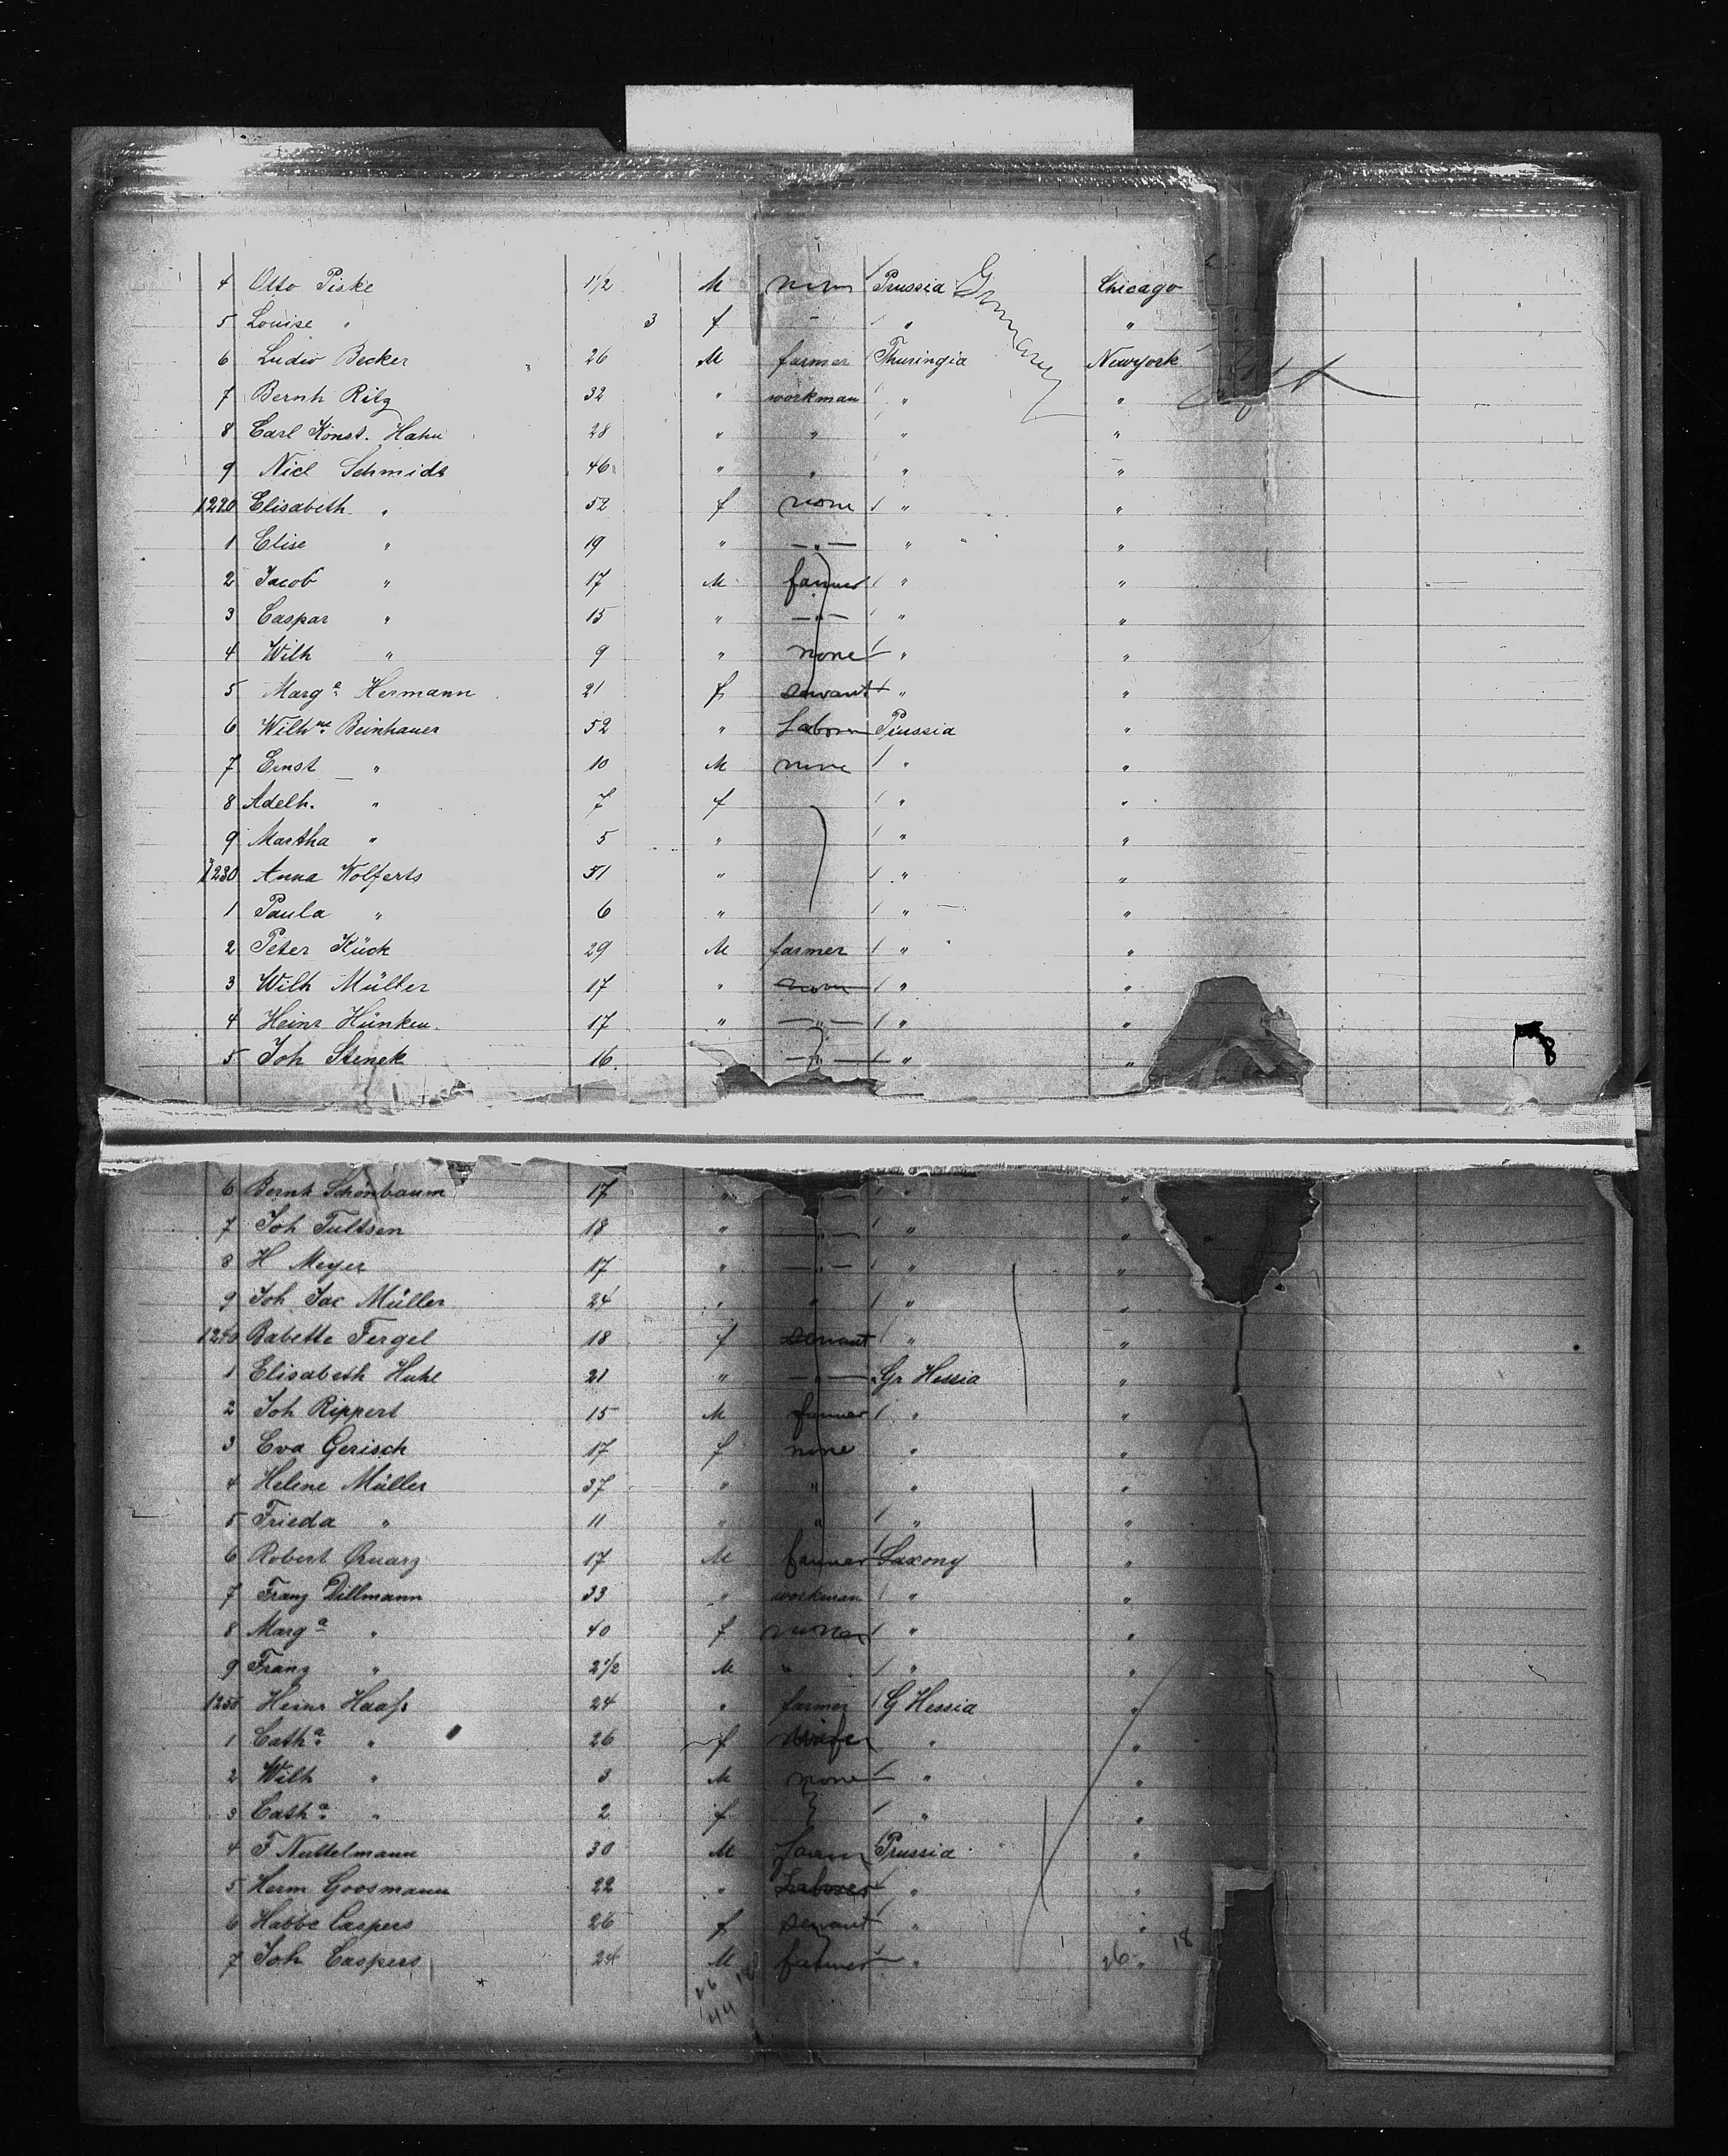 4 Otto Piske 1 1/2 M none Prussia Germany Chicago
5 Louise " 3 f - " "
6 Ludw Becker 26 M farmer Thuringia Newyork
7 Bernh Ritz 32 " workman " "
8 Carl Konst. Hahn 28 " " " "
9 Nicl Schmidt 46 " " " "
1220 Elisabeth " 52 f none " "
1 Elise " 19 " — " — " "
2 Jacob " 17 M farmer " "
3 Caspar " 15 " — " — " "
4 Wilh " 9 " none " "
5 Marga Hermann 21 f servant " "
6 Wilhne Beinhauer 52 " Labor Prussia "
7 Ernst " 10 M none " "
8 Adelh. " 7 f " "
9 Martha " 5 " " "
1230 Anna Wolferts 51 " " "
1 Paula " 6 " " "
2 Peter Kück 29 M farmer " "
3 Wilh Müller 17 " none " "
4 Heinr Hünken 17 " — " — " "
5 Joh Stenck 16. — " — " "
8
6 Bernh Schönbaum 17 " — " "
7 Joh Tultsen 18 " — " — " "
8 H Meyer 17 " — " — " "
9 Joh Jac Müller 24 " " " "
1240 Babette Fergel 18 f servant " "
1 Elisabeth Huhl 21 " — " — Gr Hessia "
2 Joh Rippert 15 M farmer " "
3 Eva Gerisch 17 f none " "
4 Helene Müller 37 " " " "
5 Frieda " 11 " " " "
6 Robert Quarz 17 M farmer Saxony "
7 Franz Dillmann 33 " workman " "
8 Marga " 40 f none " "
9 Franz " 2 1/2 M " " "
1250 Heinr Haaß 24 " farmer G Hessia "
1 Catha " 26 f wife " "
2 Wilh " 3 M none " "
3 Catha " 2 f " "
4 F Nuttelmann 30 M farm Prussia "
5 Herm Goosmann 22 " Laborer " "
6 Habbe Caspers 26 f servant " "
7 Joh Caspers 24 M farmer " "
26 18
26 18
44